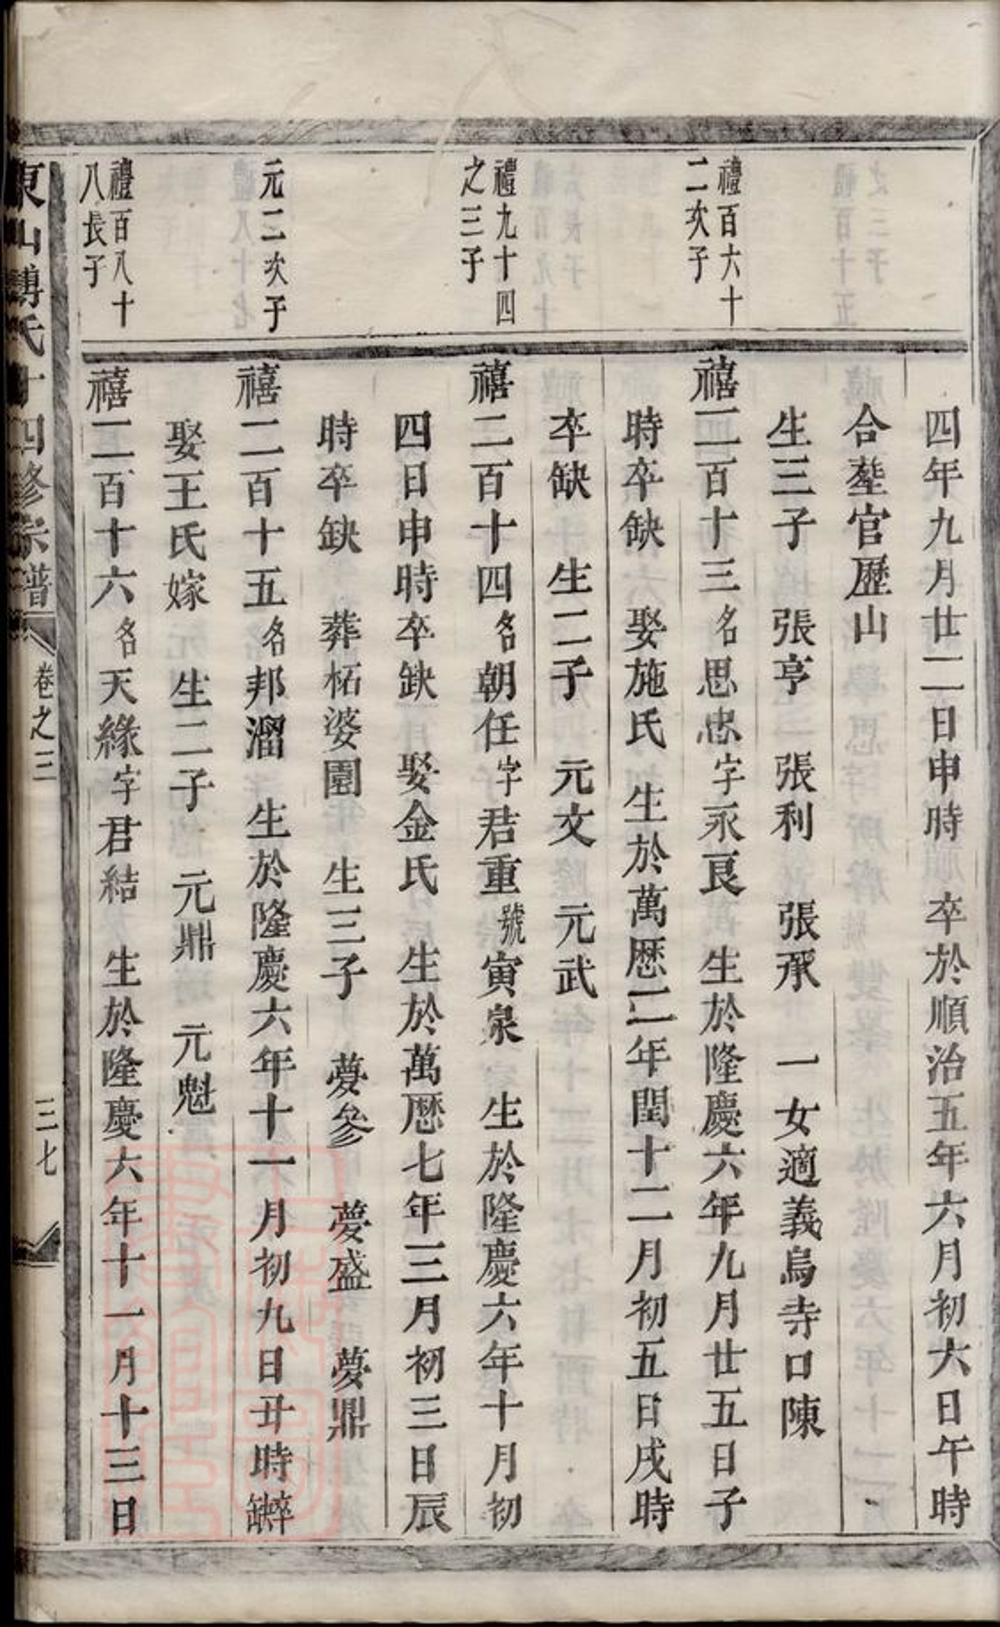 四年九月廿二日申時　卒於順治五年六月初六日午時
合塟官歷山
生三子　張亨　張利　張承　一女適義烏寺口陳
禮百六十
二次子
禧二百十三名思忠字永良　生於隆慶六年九月廿五日子
時卒缺　娶施氏　生於萬歷二年閏十二月初五日戌時
卒缺　生二子　元文　元武
禮九十四
之三子
禧二百十四名朝任字君重號寅泉　生於隆慶六年十月初
四日申時卒缺　娶金氏　生於萬歷七年三月初三日辰
時卒缺　葬柘婆園　生三子　夢參　夢盛　夢鼎
元二次子
禧二百十五名邦溜　生於隆慶六年十一月初九日丑時缺卒
娶王氏嫁　生二子　元鼎　元魁
禮百八十
八長子
禧二百十六名天緣字君結　生於隆慶六年十一月十三日
東山傅氏十四修宗譜　卷之三　三七